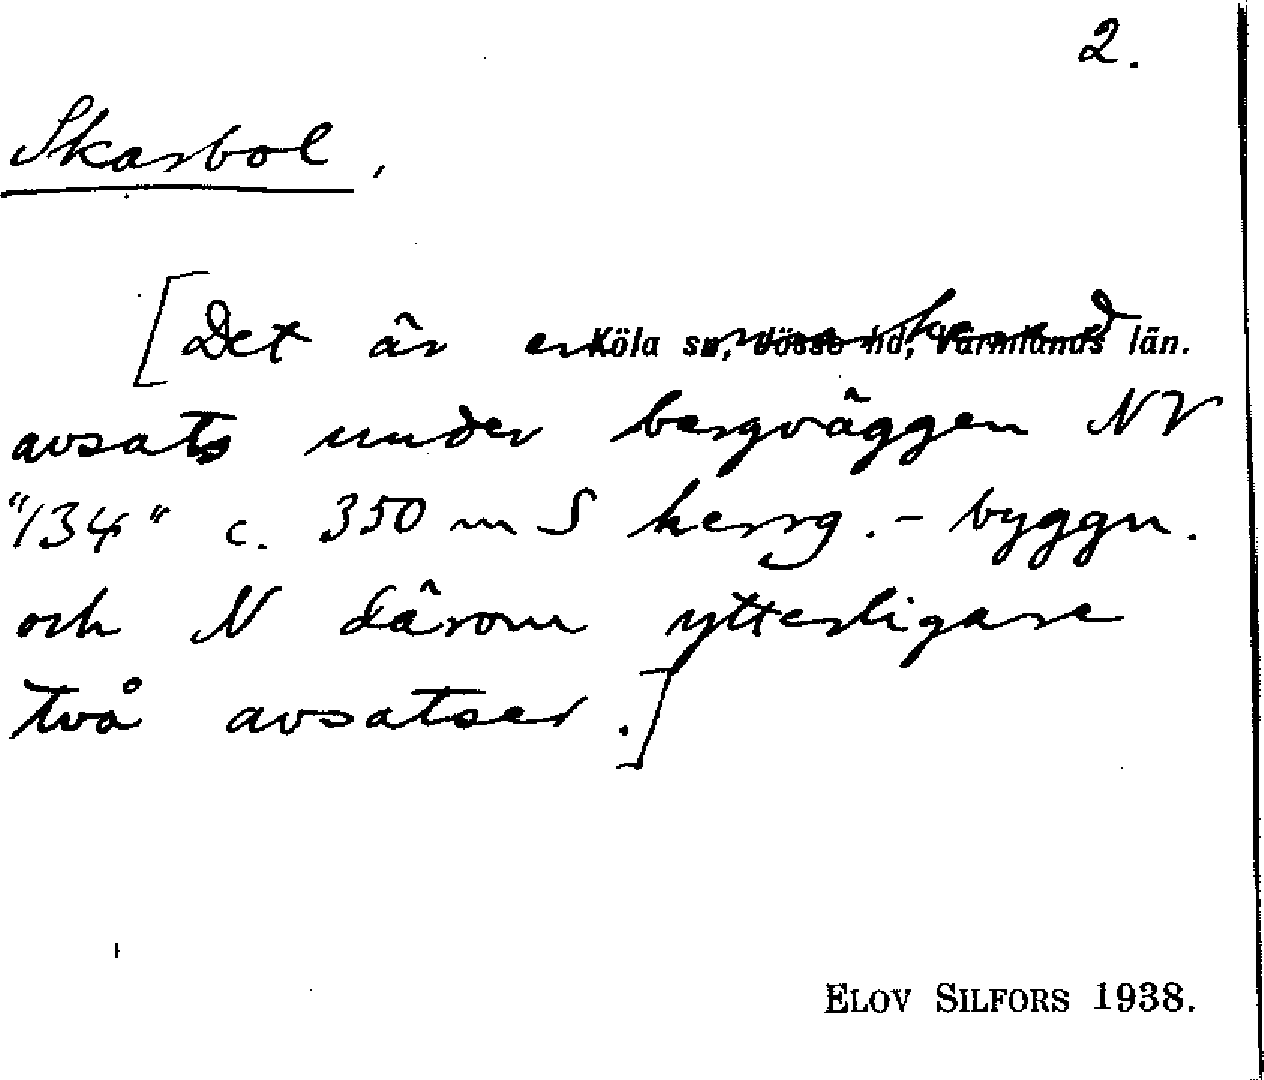 2.
Skarbol,
[Det är en markerad
Köla sn, Jösse hd, Värmlands län.
avsats under bergväggen NV
"134" c. 350 m S herrg.-byggn.
och N därom ytterligare
två avsatser.]
ELOV SILFORS 1938.